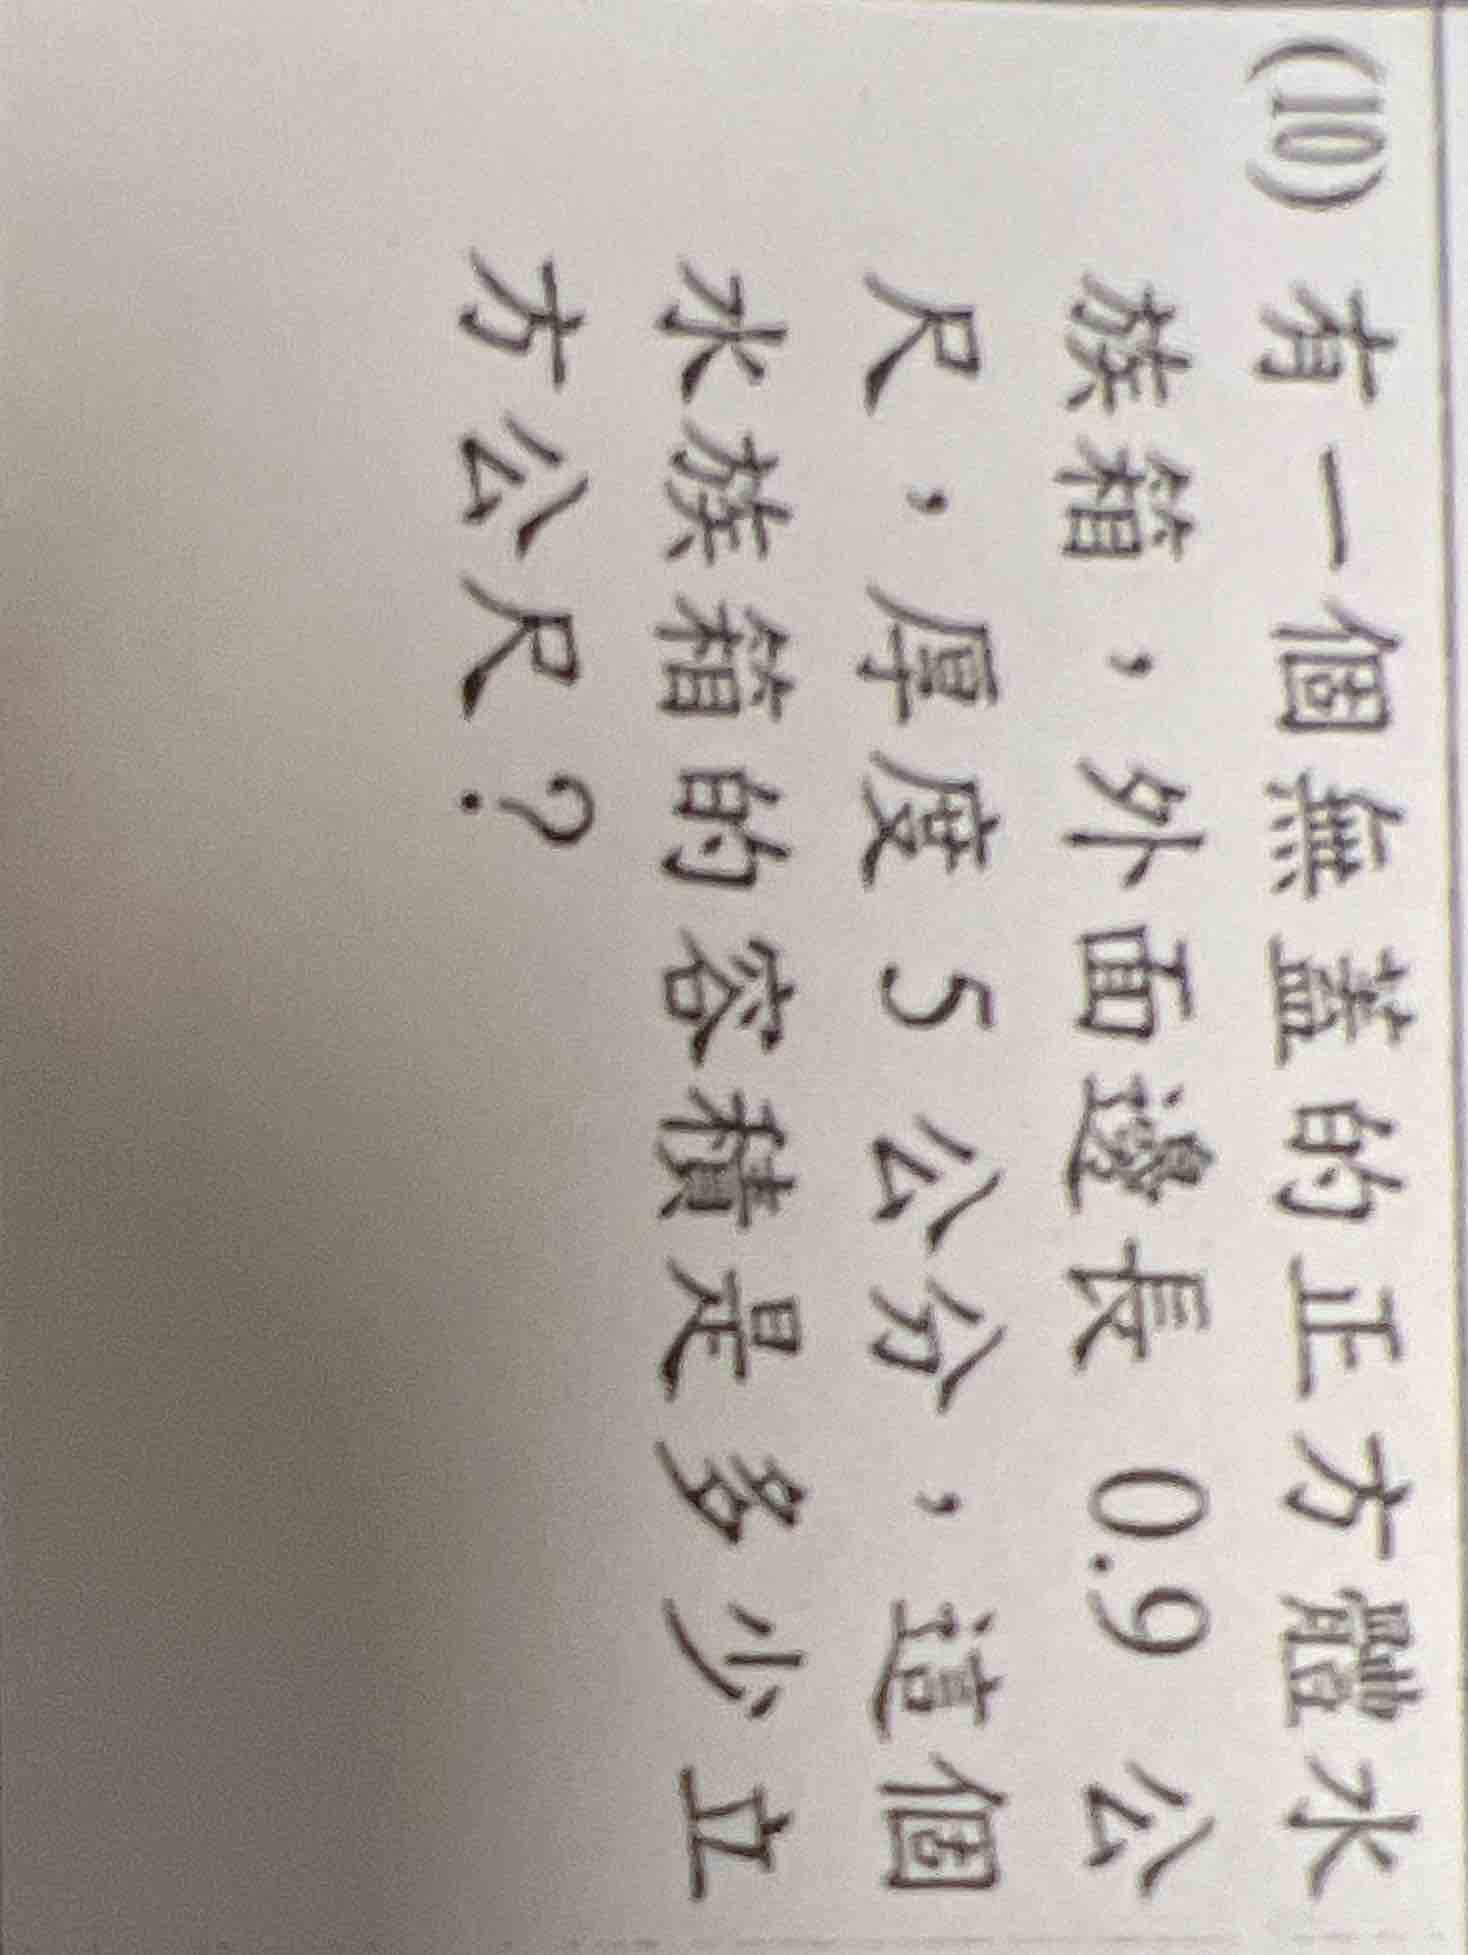 (10) 有一個無蓋的正方體水
族箱，外面邊長 0.9 公
尺，厚度 5 公分，這個
水族箱的容積是多少立
方公尺？